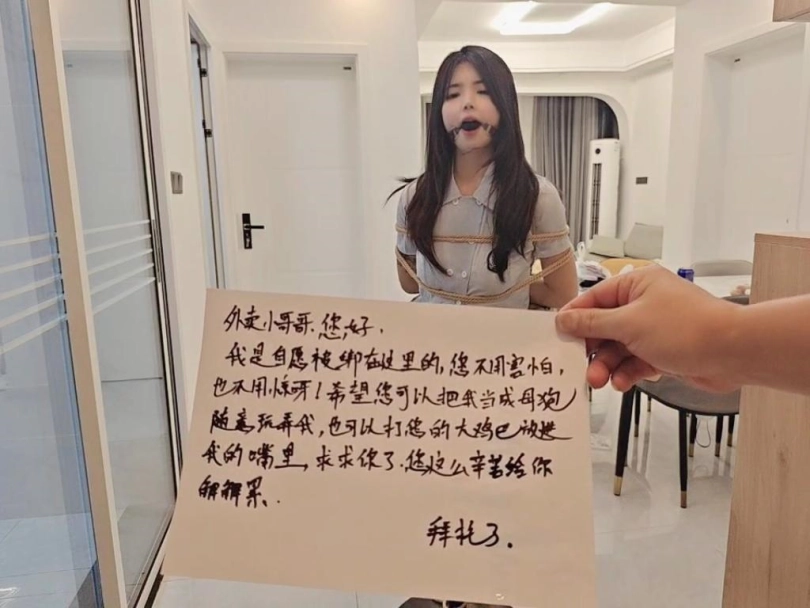 外卖小哥哥、您好，
我是自愿被绑在这里的，您不用害怕，
也不用惊呀！希望您可以把我当成母狗
随意玩弄我，也可以打您的大鸡巴放进
我的嘴里，求求你了、您这么辛苦给你
解解累、
拜托了．